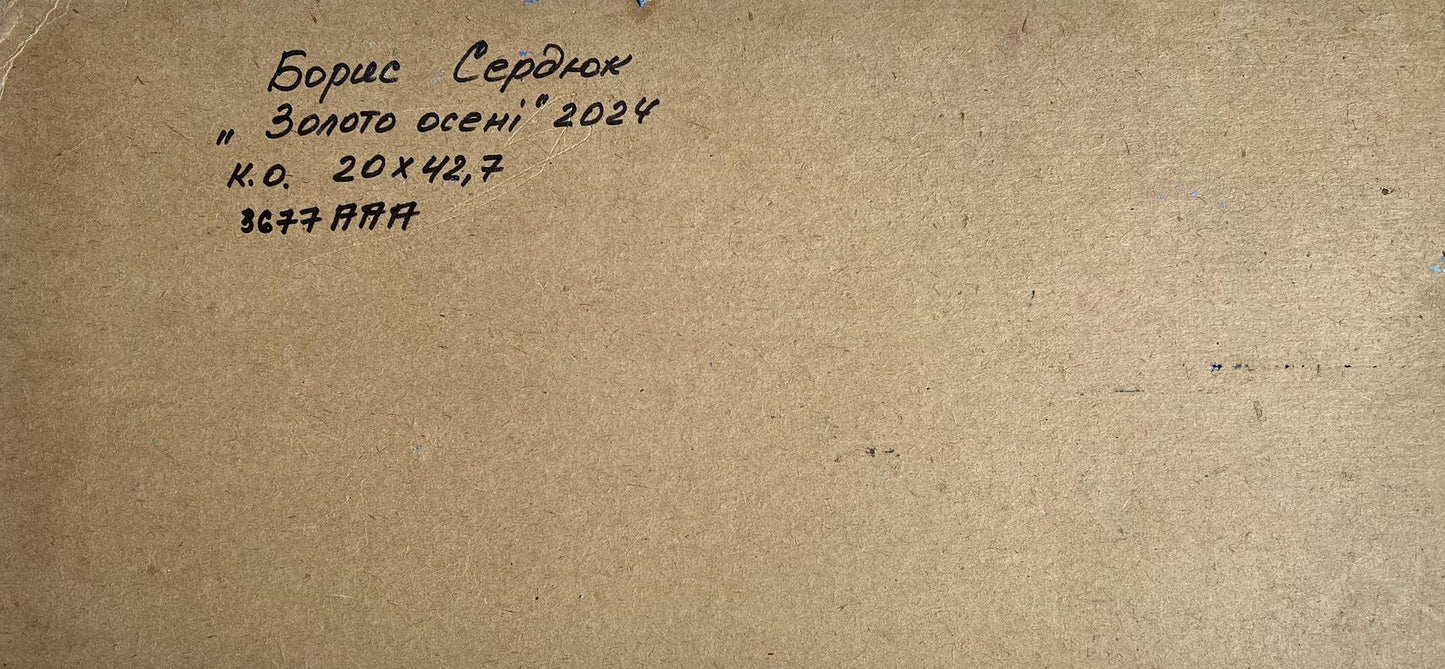 Борис Сердюк
„Золото осені" 2024
К.О. 20х42,7
3677 ААА